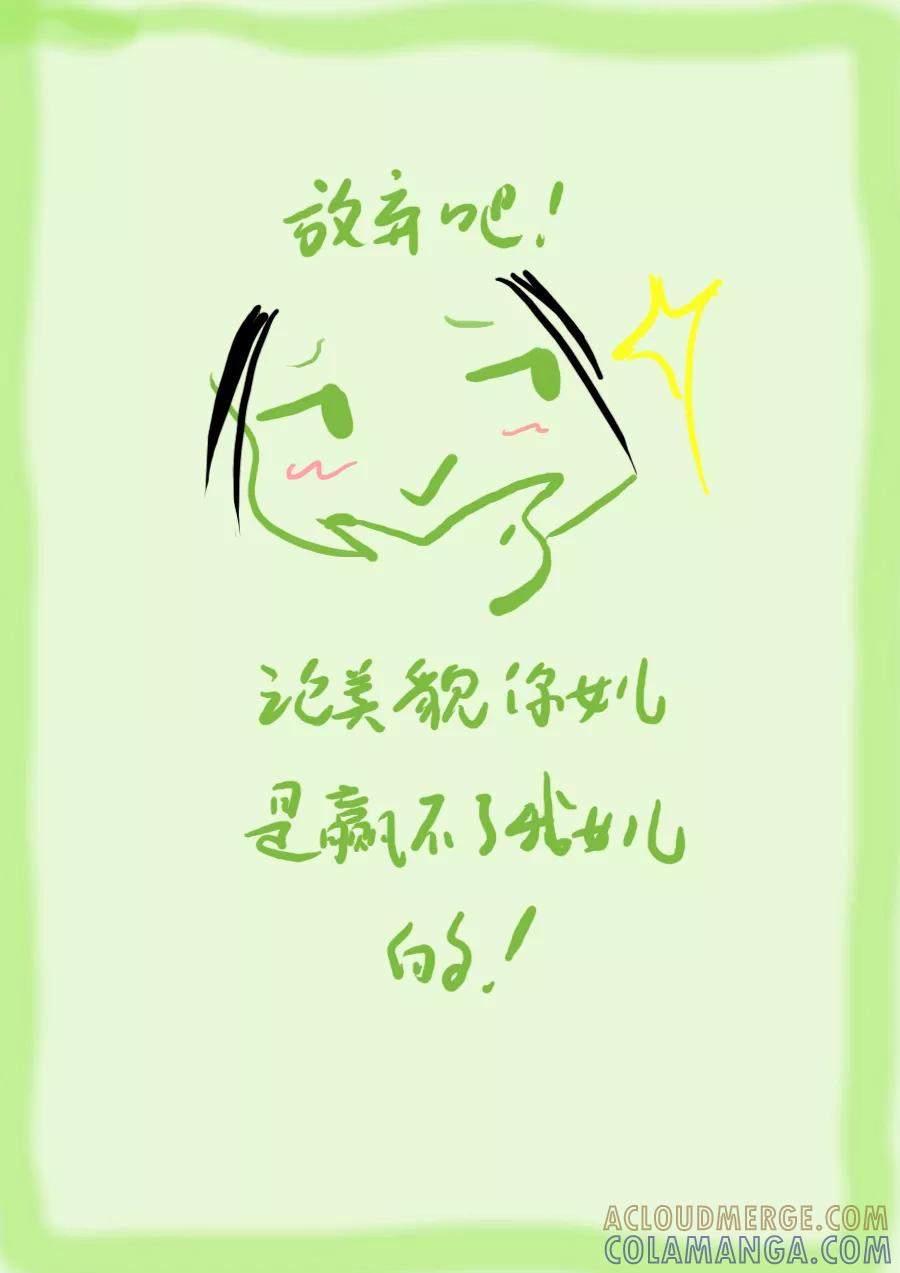 放弃吧！
论美貌你女儿
是赢不了我女儿
的！
ACLOUDMERGE.COM
COLAMANGA.COM